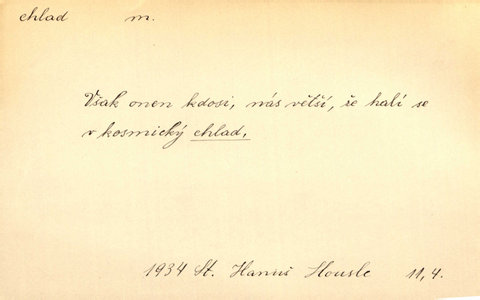 chlad m.
Však onen kdosi, nás větší, že halí se
v kosmický chlad,
1934 St. Hanuš Housle 11,4.